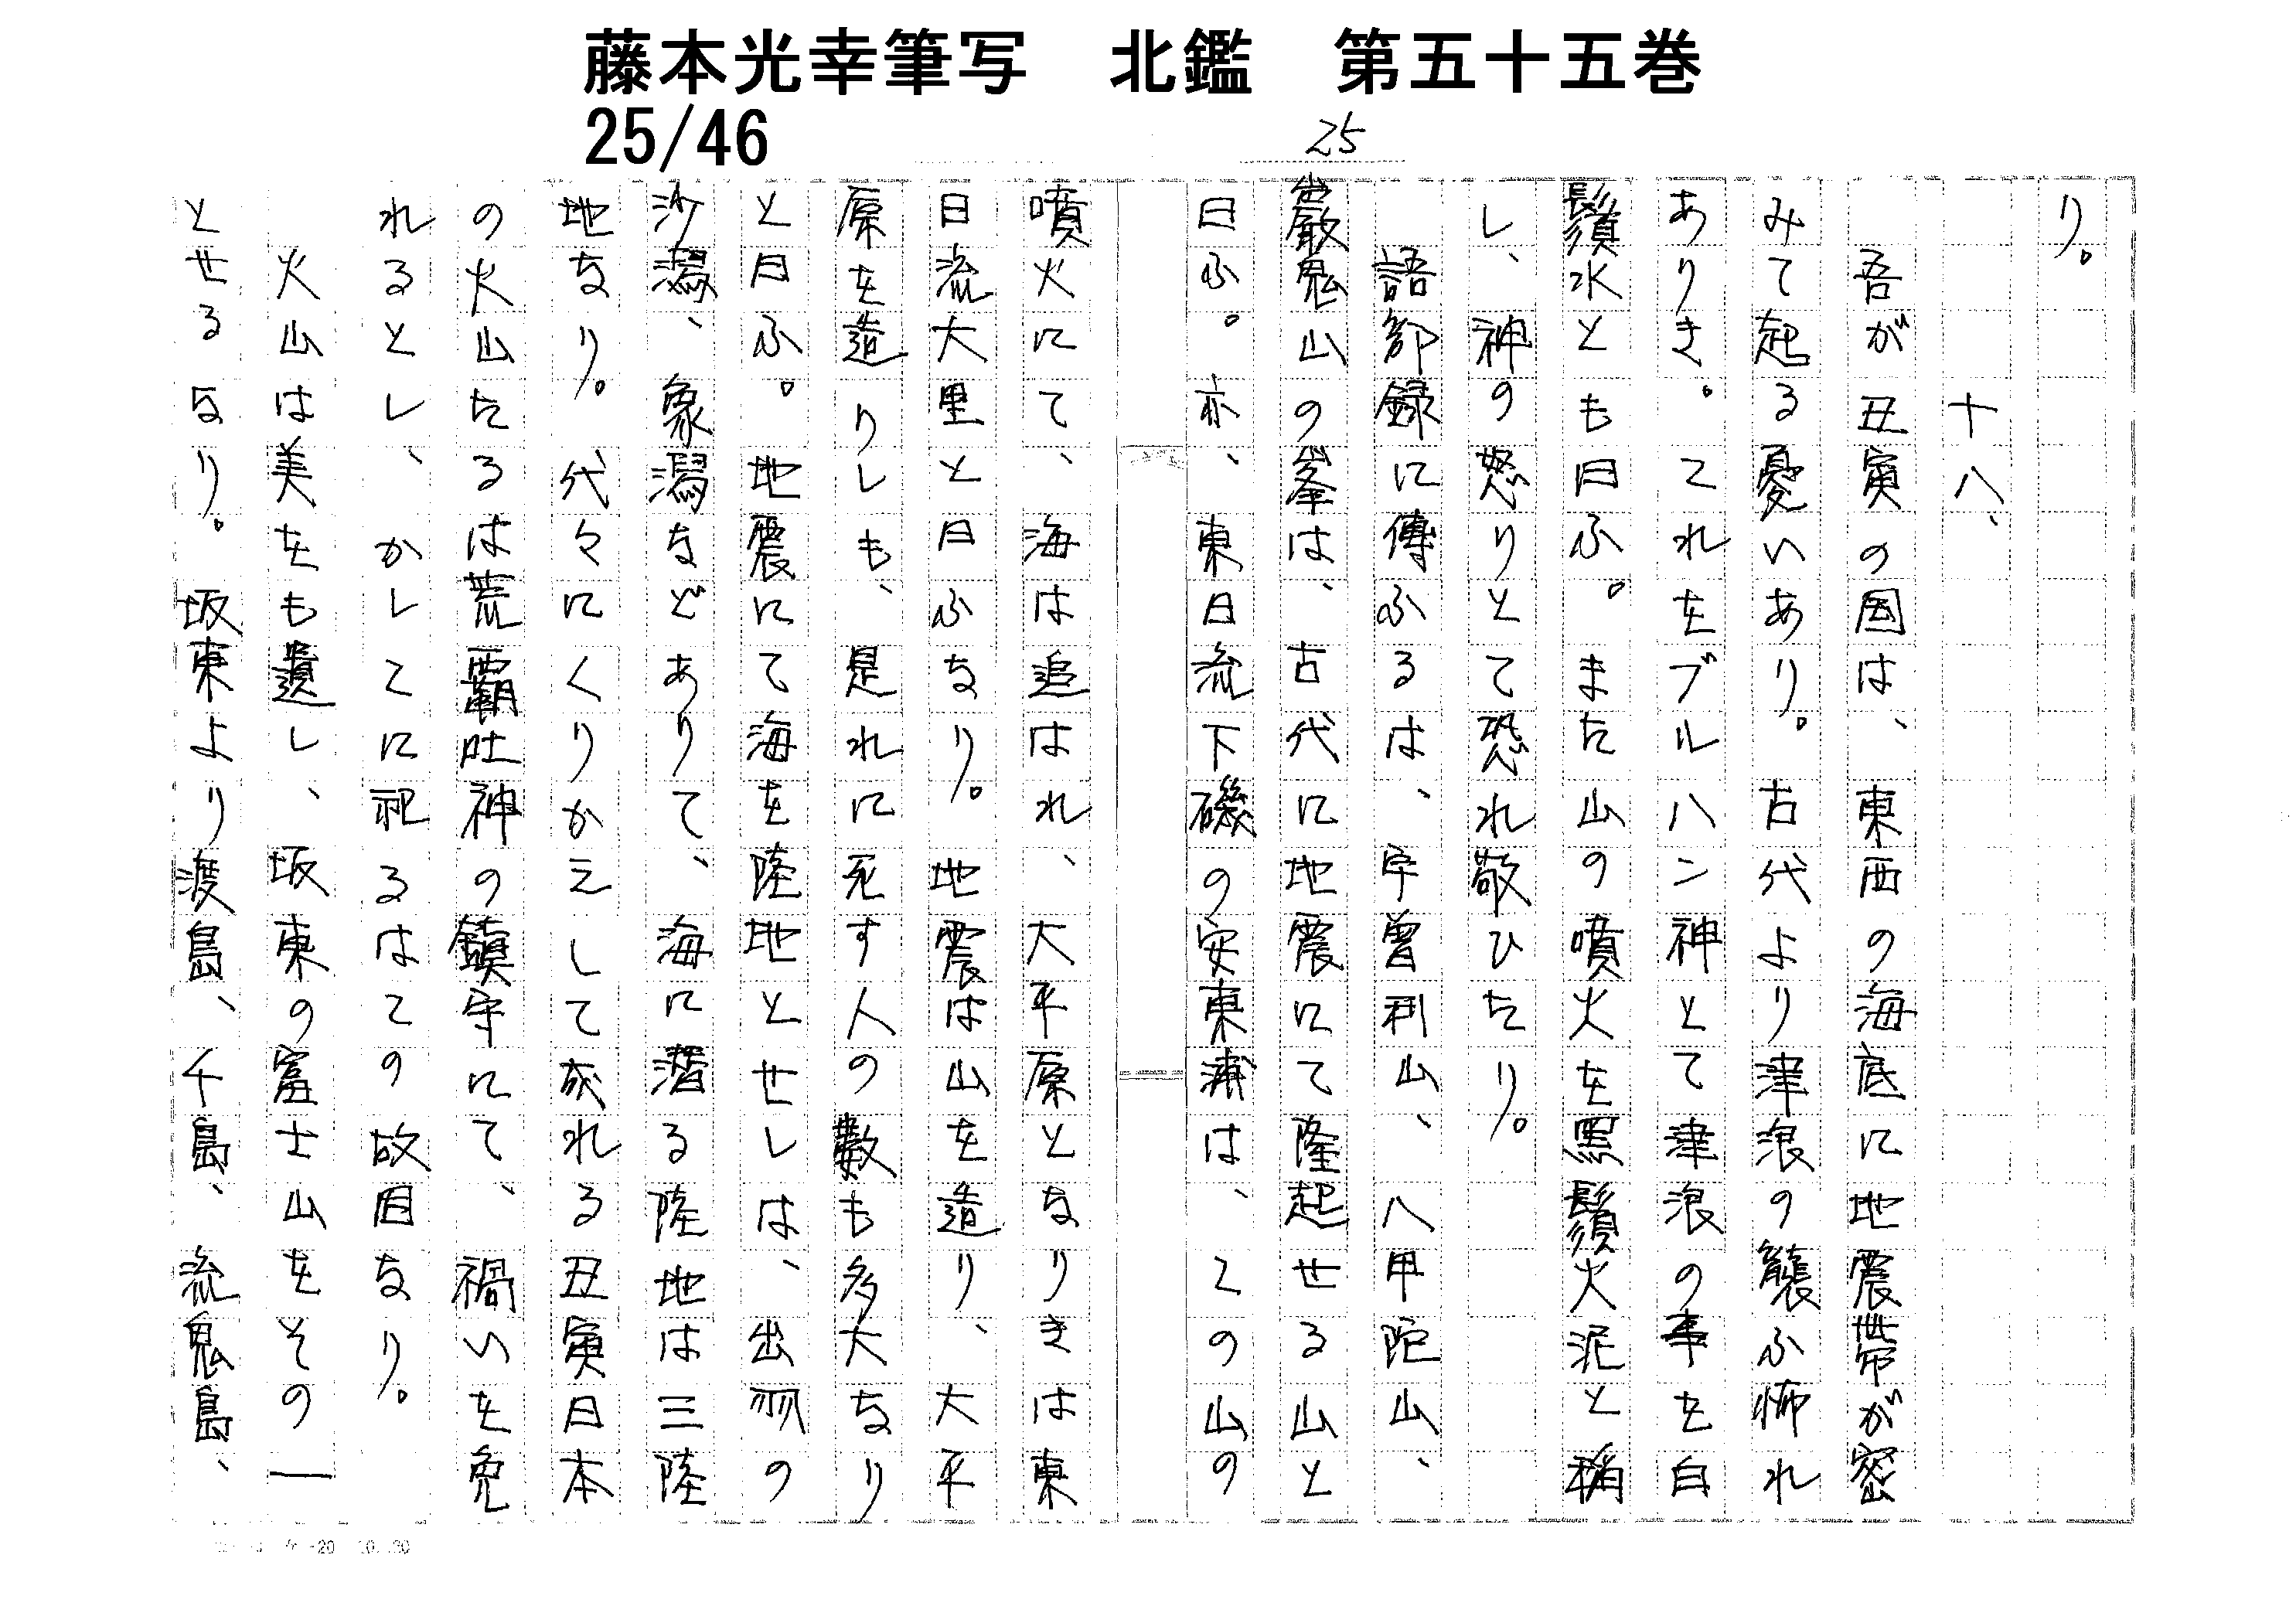 藤本光幸筆写　北鑑　第五十五巻
25/46
25
り。
十八、
吾が丑寅の国は、東西の海底に地震帯が密
みて起る憂いあり。古代より津浪の襲ふ怖れ
ありき。これをブルハン神とて津浪の事を白
鬚水とも曰ふ。また山の噴火を黒鬚火泥と稱
し、神の怒りとて恐れ敬ひたり。
語部録に傳ふるは、宇曽利山、八甲陀山、
巌鬼山の峯は、古代に地震にて隆起せる山と
曰ふ。亦、東日流下磯の安東浦は、この山の
噴火にて、海は追はれ、大平原となりきは東
日流大里と曰ふなり。地震は山を造り、大平
原を造りしも、是れに死す人の數も多大なり
と曰ふ。地震にて海を陸地とせしは、出羽の
沙潟、象潟などありて、海に潜る陸地は三陸
地なり。代々にくりかえして哀れる丑寅日本
の火山たるは荒覇吐神の鎭守にて、禍いを免
れるとし、かしこに祀るはこの故因なり。
火山は美をも遺し、坂東の富士山をその一
とせるなり。坂東より渡島、千島、流鬼島、